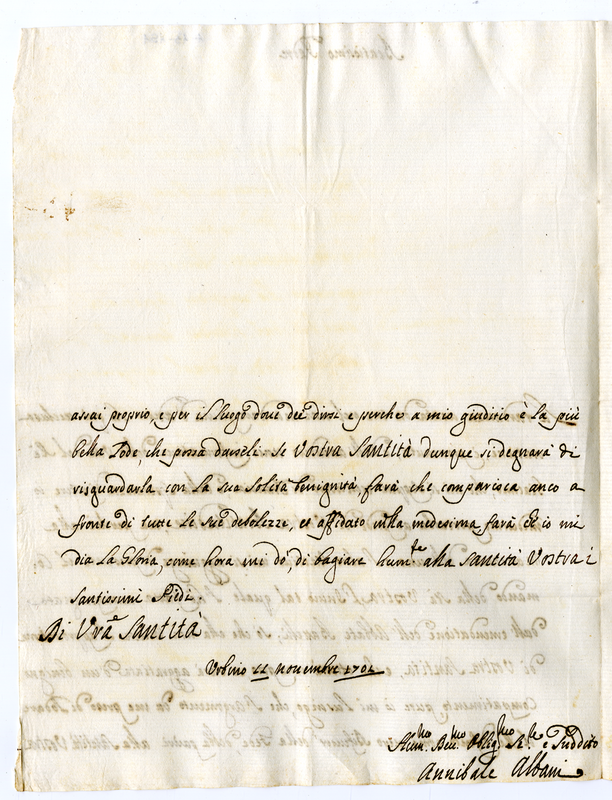 assai proprio, e per il luogo doue dee dirsi e perche a mio giuditio è la più
bella lode, che possa darseli. Se Vostra Santità dunque si degnarà di
risguardarla con la sua solita benignità, farà che comparisca anco a
fronte di tutte le sue debolezze, et affidato nella medesima farà ch' io mi
dia la Gloria, come hora mi dò, di bagiare hum.te alla Santità Vostra i
Santissimi Piedi.
Di Vra Santità
Urbino 11 novembre 1702
Hum.mo Deu.mo Oblig.mo Se.re e Suddito
Annibale Albani